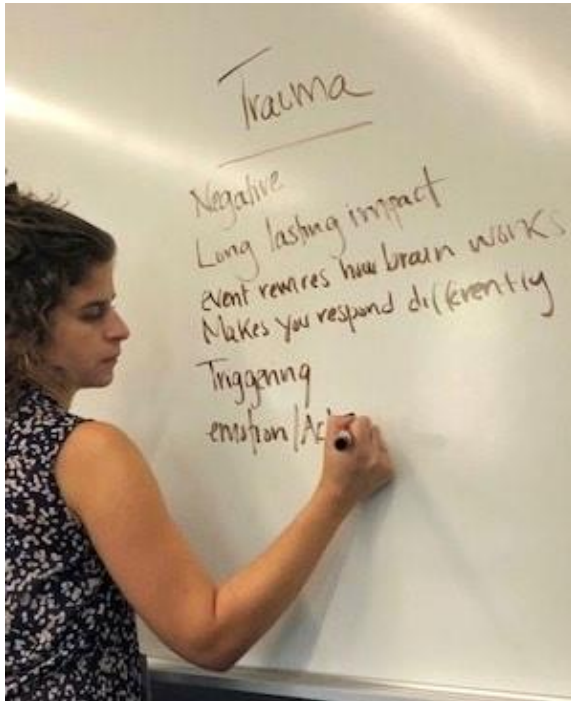 Trauma
Negative
Long lasting impact
event rewires how brain works
Makes you respond differently
Triggering
emotion/Ac